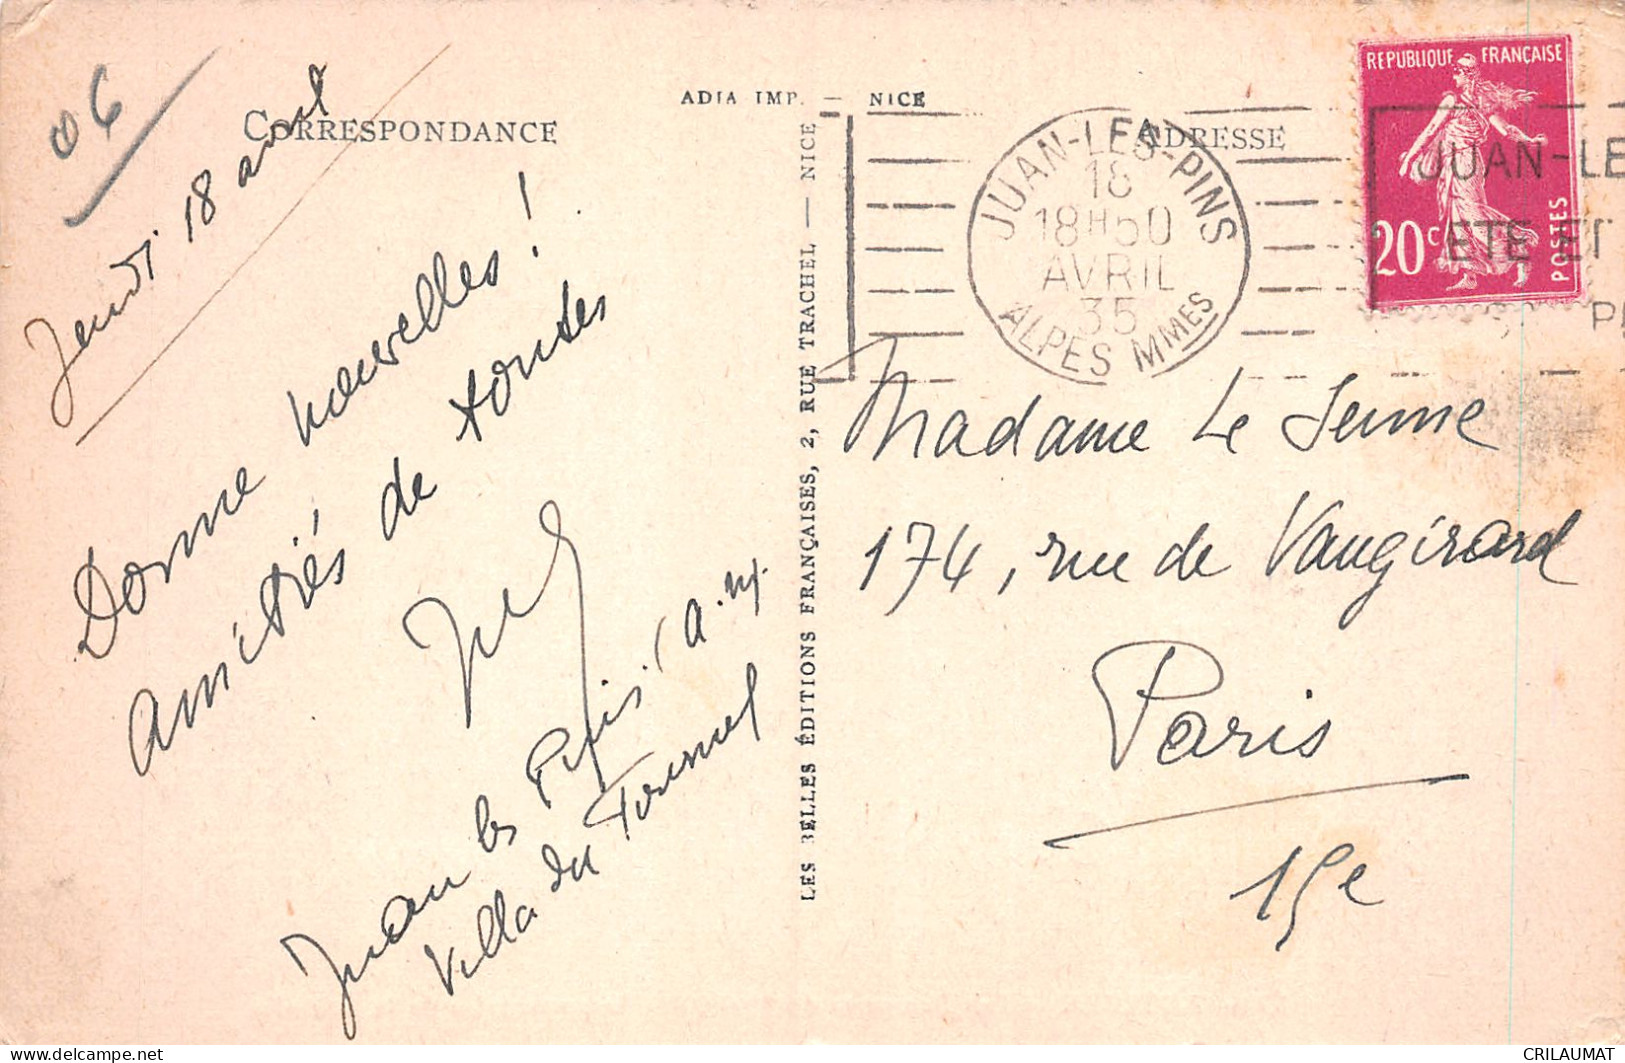 06
ADIA IMP. — NICE
CORRESPONDANCE
ADRESSE
Jeudi 18 avril
Donne nouvelles!
Amitiés de toutes
Juan les Pins. (A. M.
Villa du Tournel
LES BELLES ÉDITIONS FRANÇAISES, 2, RUE TRACHEL — NICE
JUAN-LES-PINS
18
18H50
AVRIL
35
ALPES MMES
REPUBLIQUE FRANÇAISE
20c
POSTES
JUAN-LE
ETE ET
Madame Le Senne
174, rue de Vaugirard
Paris
15e
CRILAUMAT
delcampe.net